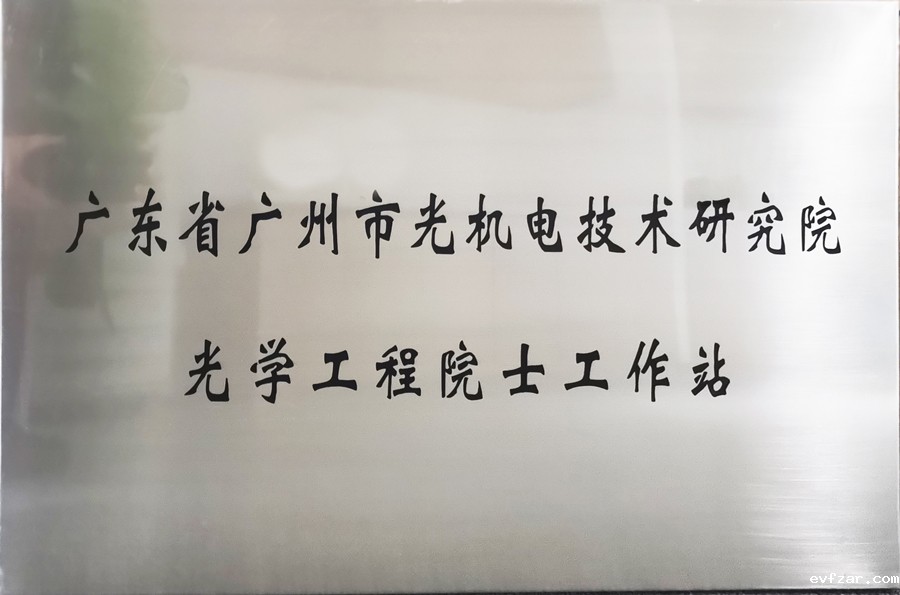 广东省广州市光机电技术研究院
光学工程院士工作站
evfzar.com